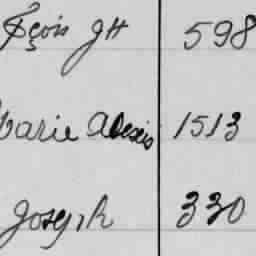 Fçois JH 598
Marie Alexis 1513
Joseph 330